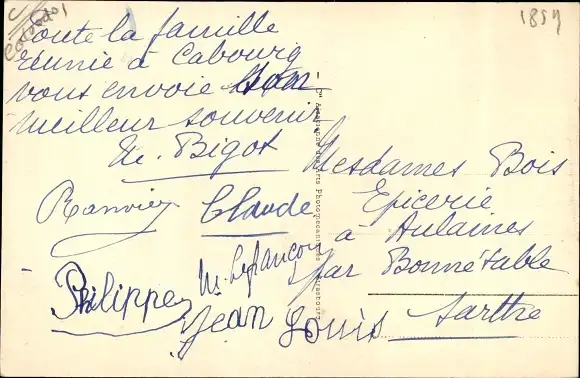 1859
Toute la famille
réunie à Cabourg
vous envoie son
meilleur souvenir
M. Bigot
Ranvier Claude
Philippe M. Lefrançois
Jean Louis
Mesdames Bois
Epicerie
à Aulaines
par Bonnétable
Sarthe